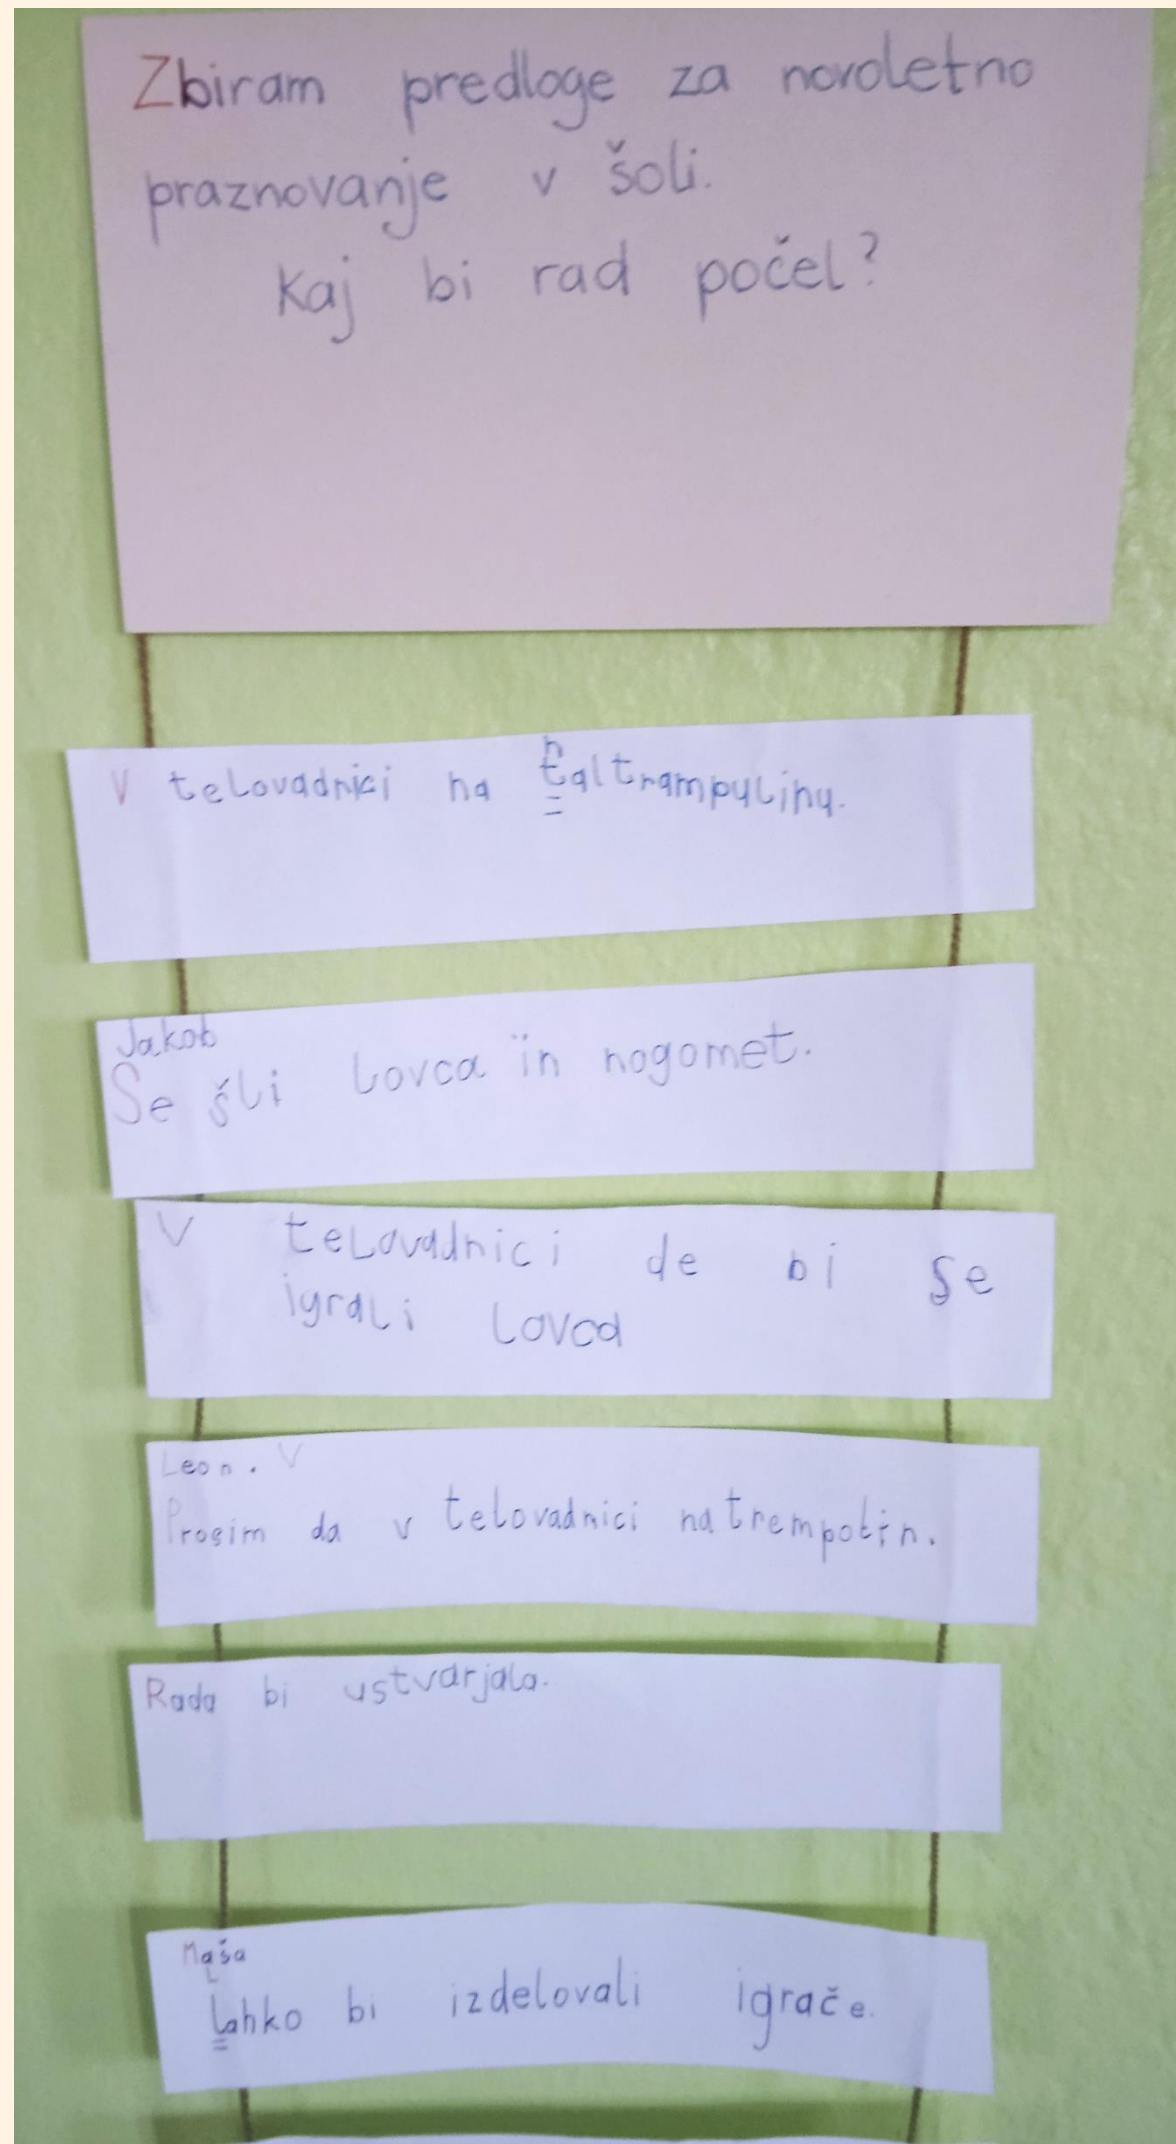 Zbiram predloge za novoletno
praznovanje v šoli.
Kaj bi rad počel?
V telovadnici na
Jakob
Se šli lovca in nogomet.
V telovadnici de bi se
igrali lovca
Leon. V
Prosim da v telovadnici na trempolin.
Rada bi ustvarjala.
Maša
Lahko bi izdelovali igrače.